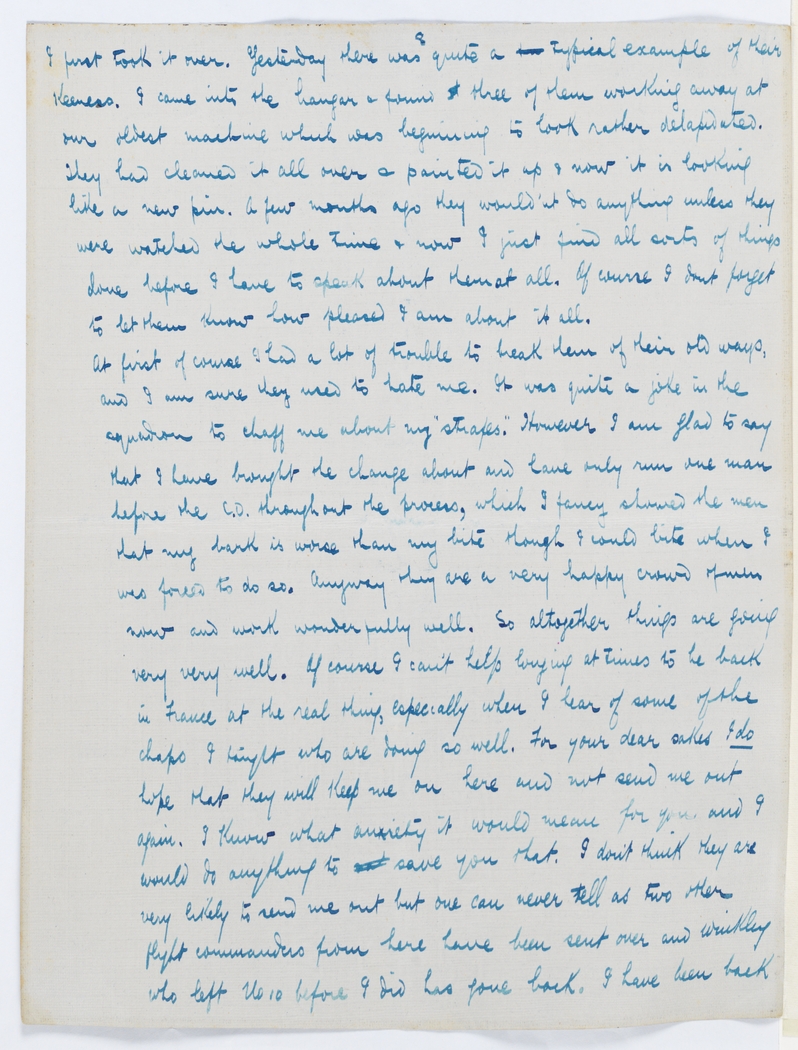 I first took it over. Yesterday there was quite a typical example of their
Keeness. I came into the hangar & found three of them working away at
our oldest machine which was beginning to look rather delapidated.
They had cleaned it all over & painted it up & now it is looking
like a new pin. A few months ago they would'nt do anything unless they
were watched the whole time & now I just find all sorts of things
done before I have to speak about them at all. Of course I dont forget
to let them know how pleased I am about it all.
At first of course I had a lot of trouble to break them of their old ways,
and I am sure they used to hate me. It was quite a joke in the
squadron to chaff me about my "strafes". However I am glad to say
that I have brought the change about and have only run one man
before the C.O. throughout the process, which I fancy showed the men
that my bark is worse than my bite though I could bite when I
was forced to do so. Anyway they are a very happy crowd of men
now and work wonderfully well. So altogether things are going
very very well. Of course I can't help longing at times to be back
in France at the real thing, especially when I hear of some of the
chaps I taught who are doing so well. For your dear sakes I do
hope that they will Keep me on here and not send me out
again. I Know what anxiety it would mean for you and I
would do anything to save you that. I don't think they are
very likely to send me out but one can never tell as two other
flight commanders from here have been sent over and Winkley
who left No 10 before I did has gone back. I have been back